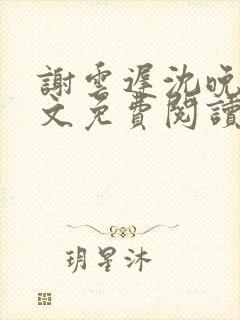 謝雲遲沈晚
文免費閱讀
玥星沐